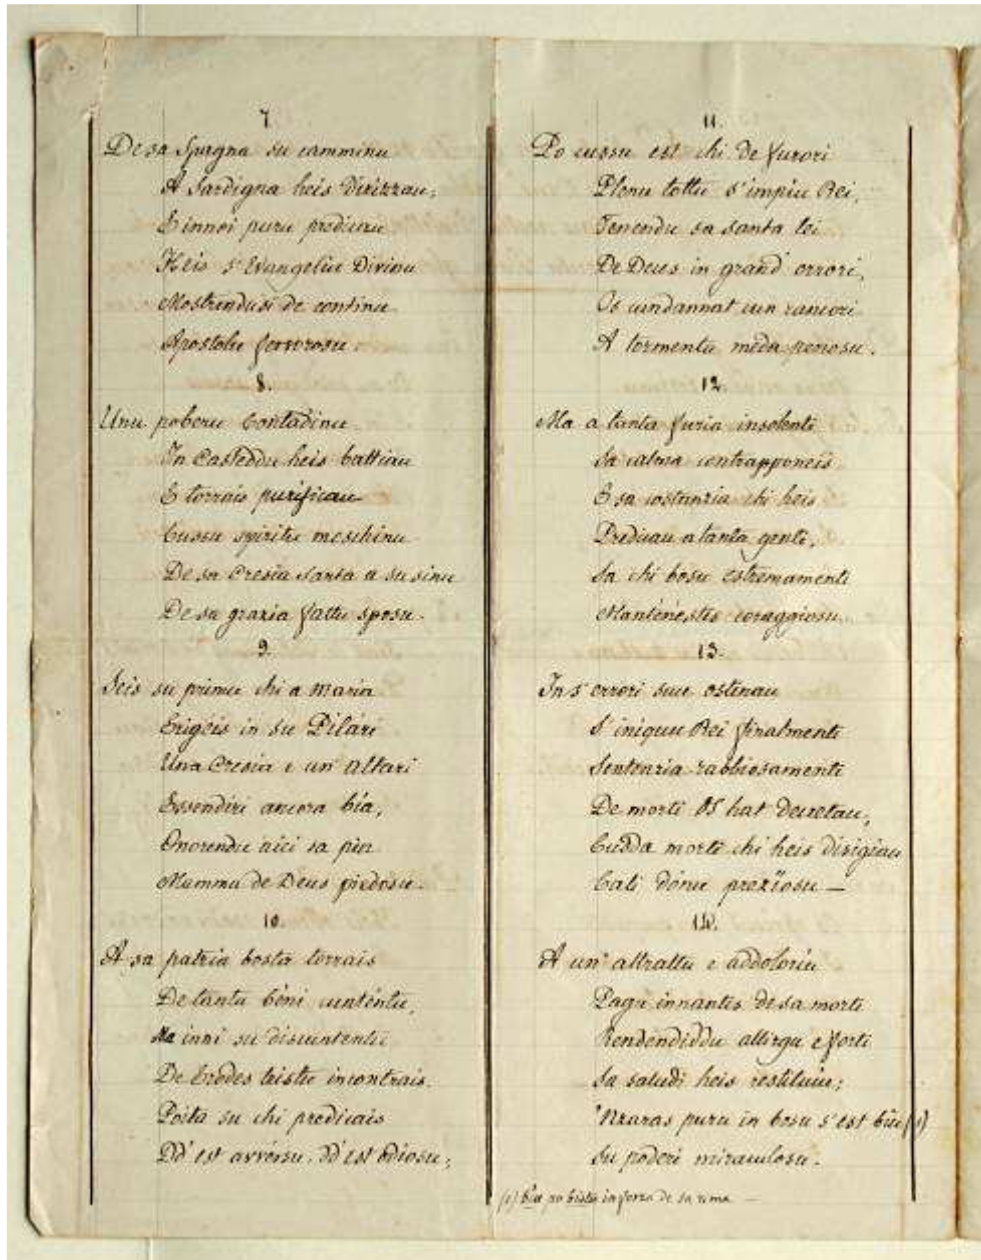 7.
De sa Spagna su camminu
A Sardigna heis dirizzau;
E innoi puru predicau
Heis s'Evangeliu Divinu
Mostrendusì de continu
Apostolu fervorosu.
8.
Unu poberu Contadinu
In Casteddu heis battiau
E torrais purificau
Cussu spiritu meschinu
De sa Cresia Santa a su sinu
De su grazia fattu sposu.
9.
Seis su primu chi a Maria
Erigeis in su Pilari
Una Cresia e un' altari
Essendiri ancora bia,
Onorendu aici sa pia
Mamma de Deus piedosu.
10.
A sa patria bosta torrais
De tantu béni cuntentu,
Ma inni su discuntentu
De Erodes tristu incontrais
Poita su chi predicais
Dd' est avversu, dd' est odiosu;
11.
Po cussu est chi de furori
Plenu tottu s'impiu Rei,
Tenendu sa santa lei
De Deus in grand' errori,
Os cundannat cun rancori
A tormentu meda penosu.
12.
Ma a tanta furia insolenti
Sa calma contrapponeis
E sa costanzia chi heis
Predicau a tanta genti,
Sa chi bosu estremamenti
Mantenestis coraggiosu.
13.
In s'errori suu ostinau
S' iniquu Rei finalmenti
Sentenzia rabbiosamenti
De morti OS hat decretau,
Cudda morti chi heis disigiau
Cali donu preziosu —
14.
A un' attrattu e addoloriu
Pagu innantis de sa morti
Rendendiddu allirgu e forti
Sa saludi heis restituiu;
'Nzaras puru in bosu s'est biu (1)
Su poderi miraculosu.
(1) biu po bistu in forza de sa rima —